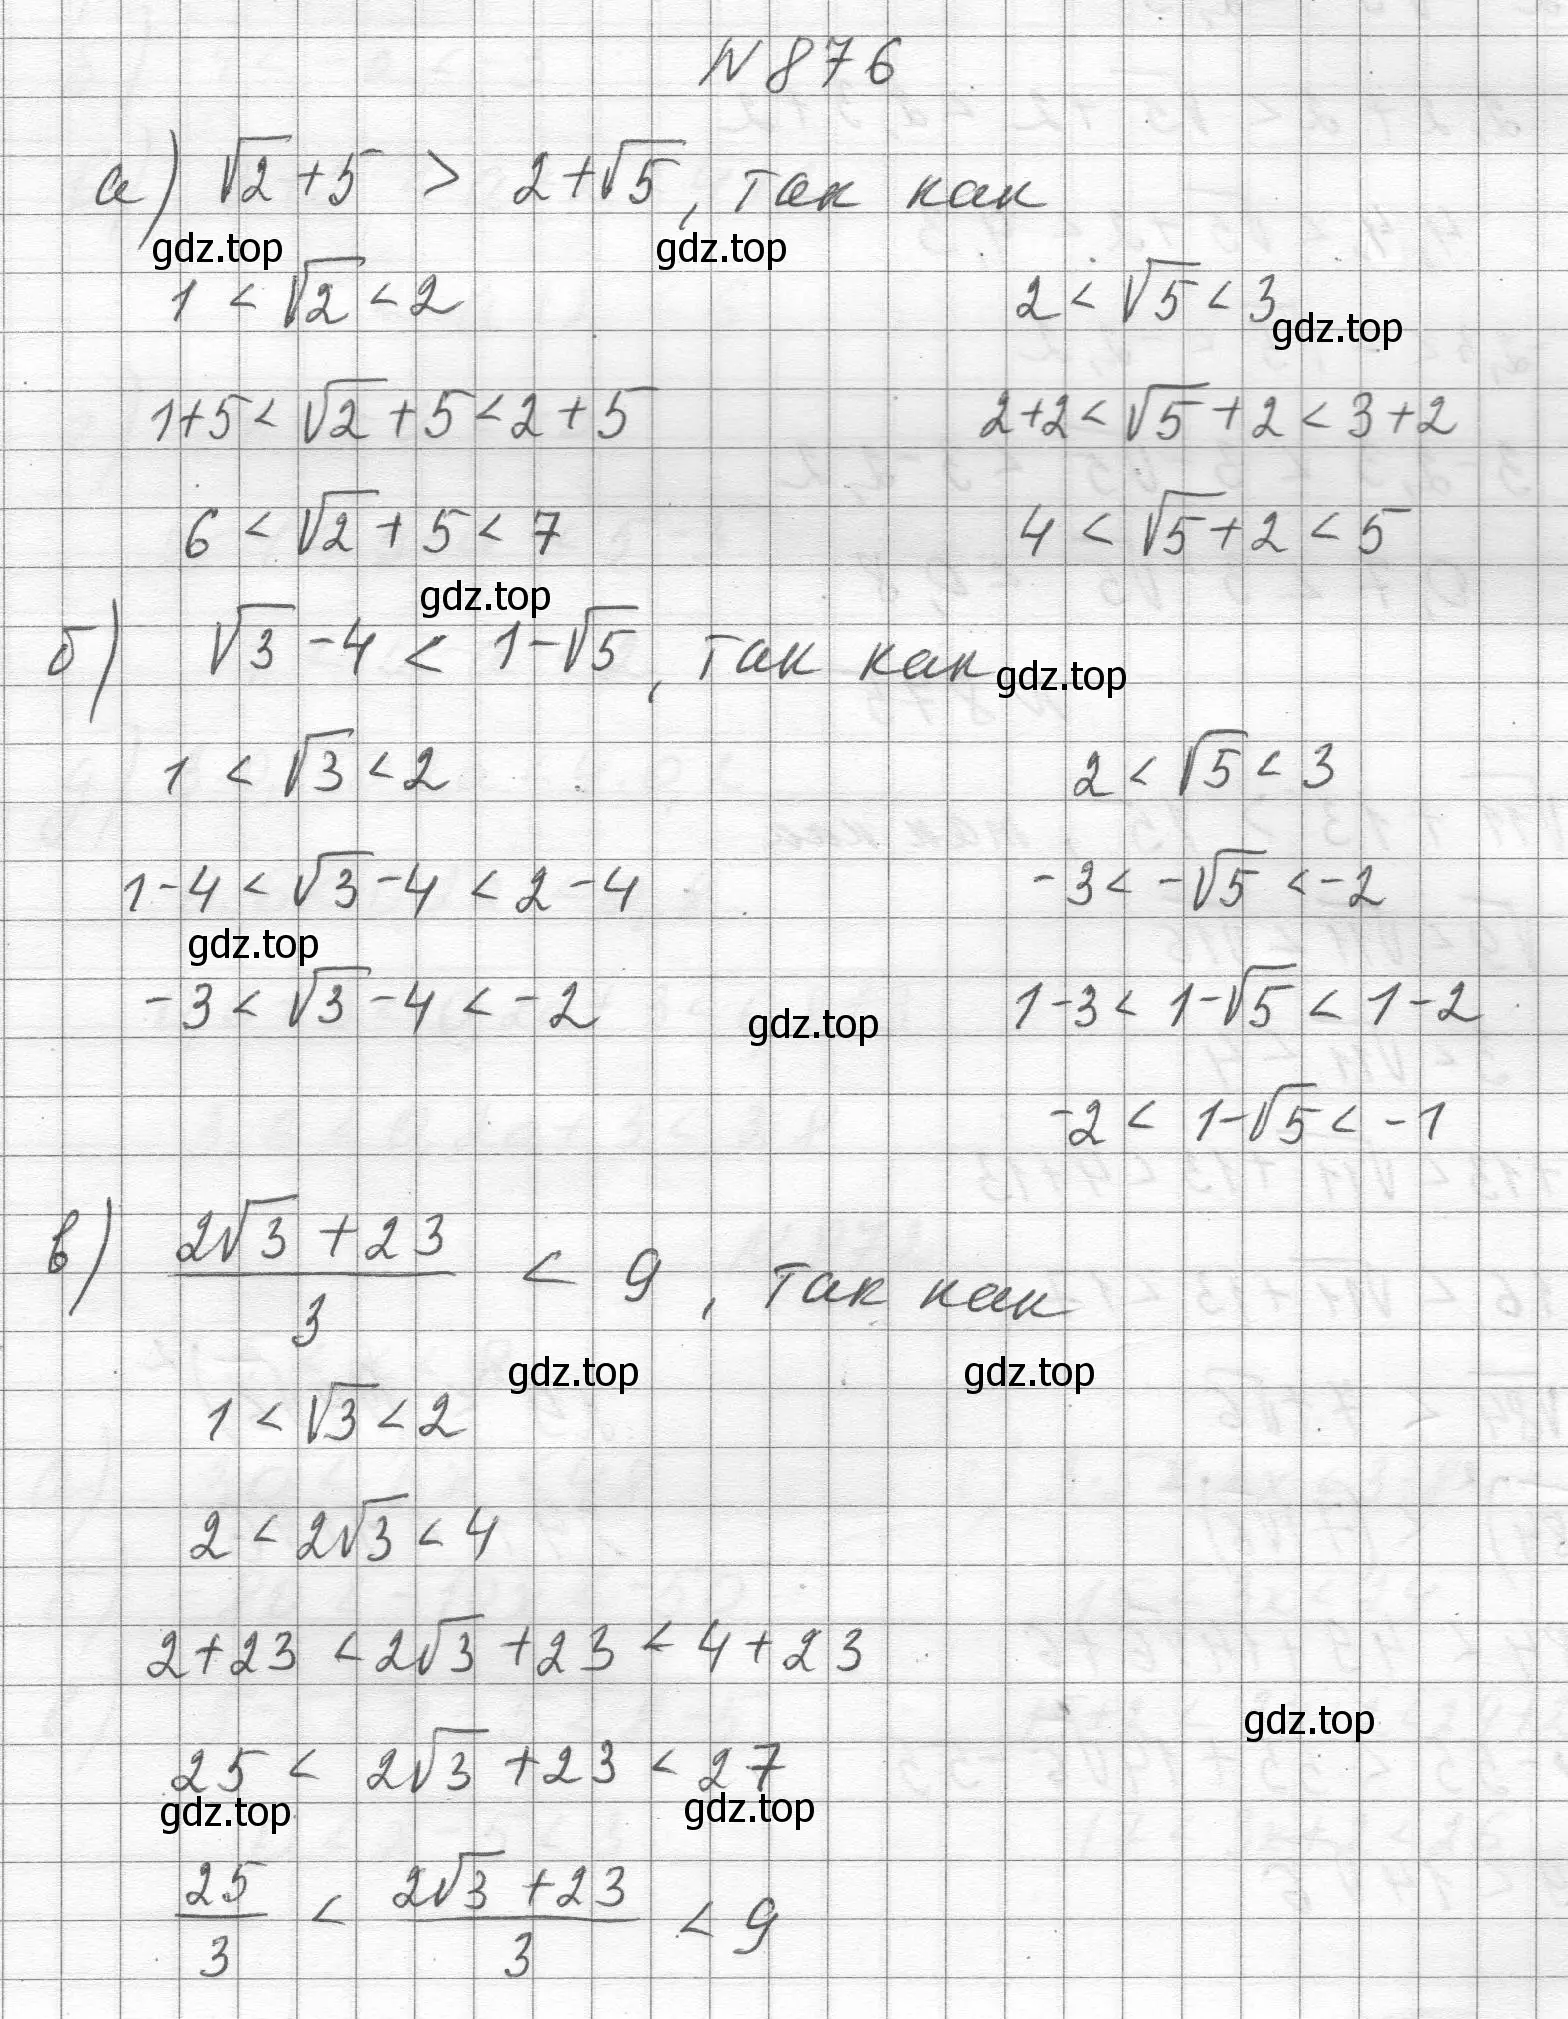 N 876
а) √2 + 5 > 2 + √5, так как
gdz.top gdz.top
1 < √2 < 2 2 < √5 < 3
gdz.top
1+5 < √2 + 5 < 2 + 5 2+2 < √5 + 2 < 3 + 2
6 < √2 + 5 < 7 4 < √5 + 2 < 5
gdz.top
б) √3 - 4 < 1 - √5, так как
gdz.top
1 < √3 < 2 2 < √5 < 3
1 - 4 < √3 - 4 < 2 - 4 -3 < -√5 < -2
gdz.top
-3 < √3 - 4 < -2 1 - 3 < 1 - √5 < 1 - 2
gdz.top
-2 < 1 - √5 < -1
в) (2√3 + 23)/3 < 9, так как
gdz.top gdz.top
1 < √3 < 2
2 < 2√3 < 4
2 + 23 < 2√3 + 23 < 4 + 23
gdz.top
25 < 2√3 + 23 < 27
gdz.top gdz.top
25/3 < (2√3 + 23)/3 < 9